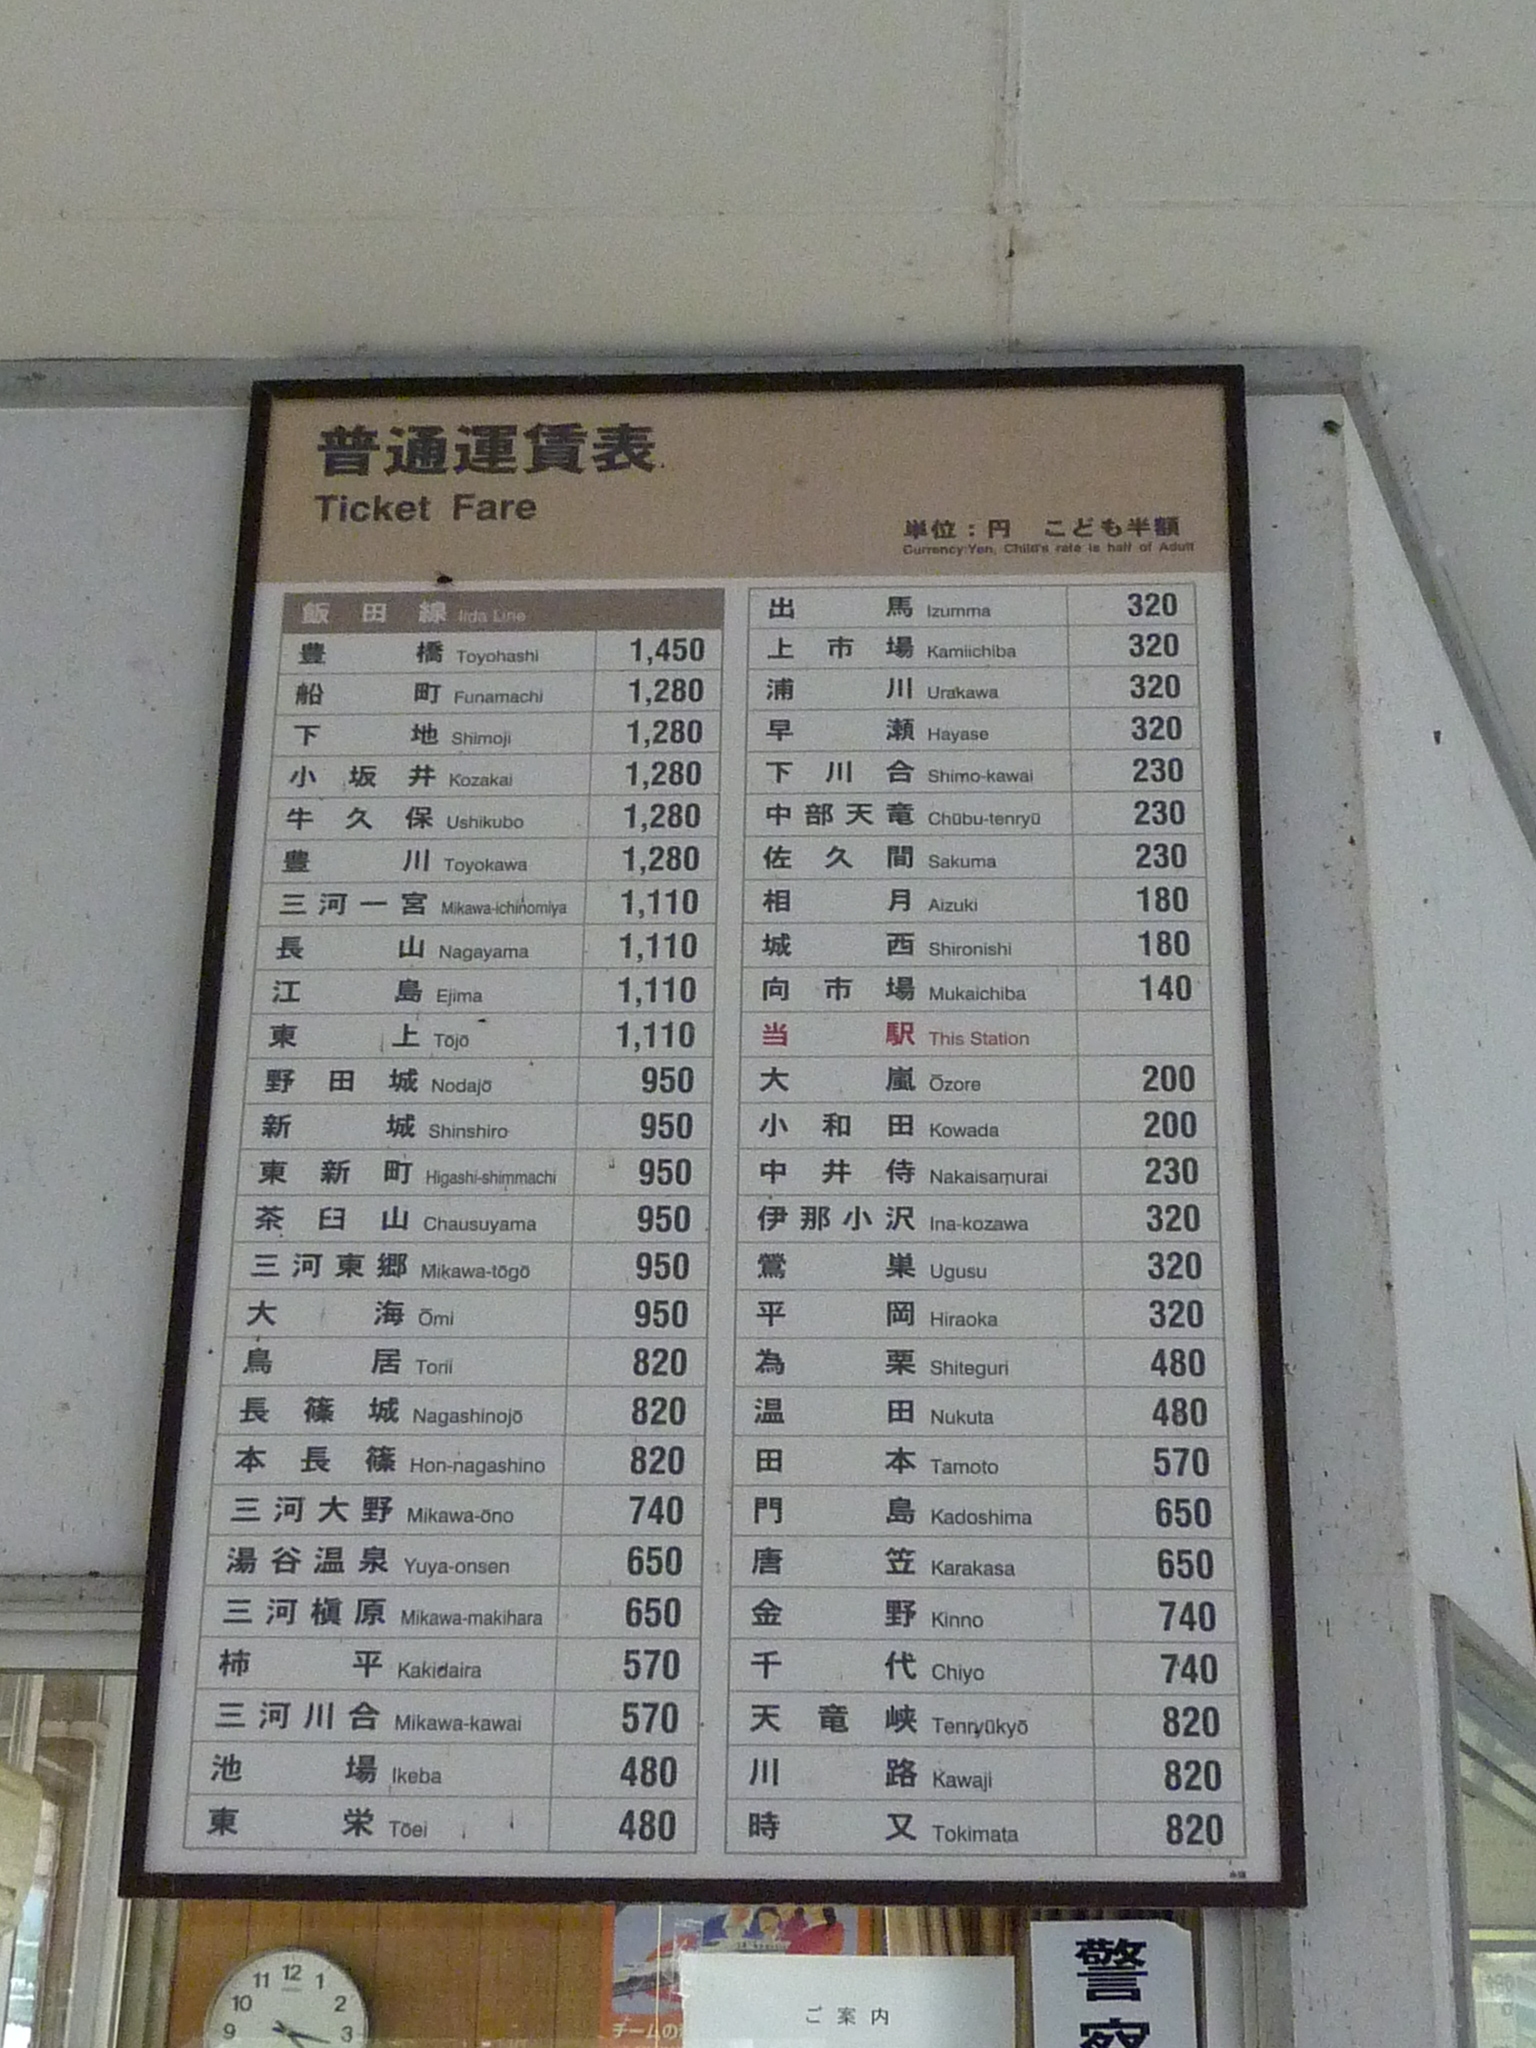 普通運賃表
Ticket Fare
単位：円 こども半額
Currency:Yen, Child's rate is half of Adult
飯田線 Iida Line
豊橋 Toyohashi 1,450
船町 Funamachi 1,280
下地 Shimoji 1,280
小坂井 Kozakai 1,280
牛久保 Ushikubo 1,280
豊川 Toyokawa 1,280
三河一宮 Mikawa-ichinomiya 1,110
長山 Nagayama 1,110
江島 Ejima 1,110
東上 Tōjō 1,110
野田城 Nodajō 950
新城 Shinshiro 950
東新町 Higashi-shimmachi 950
茶臼山 Chausuyama 950
三河東郷 Mikawa-tōgō 950
大海 Ōmi 950
鳥居 Torii 820
長篠城 Nagashinojō 820
本長篠 Hon-nagashino 820
三河大野 Mikawa-ōno 740
湯谷温泉 Yuya-onsen 650
三河槇原 Mikawa-makihara 650
柿平 Kakidaira 570
三河川合 Mikawa-kawai 570
池場 Ikeba 480
東栄 Tōei 480
出馬 Izumma 320
上市場 Kamiichiba 320
浦川 Urakawa 320
早瀬 Hayase 320
下川合 Shimo-kawai 230
中部天竜 Chūbu-tenryū 230
佐久間 Sakuma 230
相月 Aizuki 180
城西 Shironishi 180
向市場 Mukaichiba 140
当駅 This Station
大嵐 Ōzore 200
小和田 Kowada 200
中井侍 Nakaisamurai 230
伊那小沢 Ina-kozawa 320
鶯巣 Ugusu 320
平岡 Hiraoka 320
為栗 Shiteguri 480
温田 Nukuta 480
田本 Tamoto 570
門島 Kadoshima 650
唐笠 Karakasa 650
金野 Kinno 740
千代 Chiyo 740
天竜峡 Tenryūkyō 820
川路 Kawaji 820
時又 Tokimata 820
11 12 1
10 2
9 3
チームの
ご案内
警察